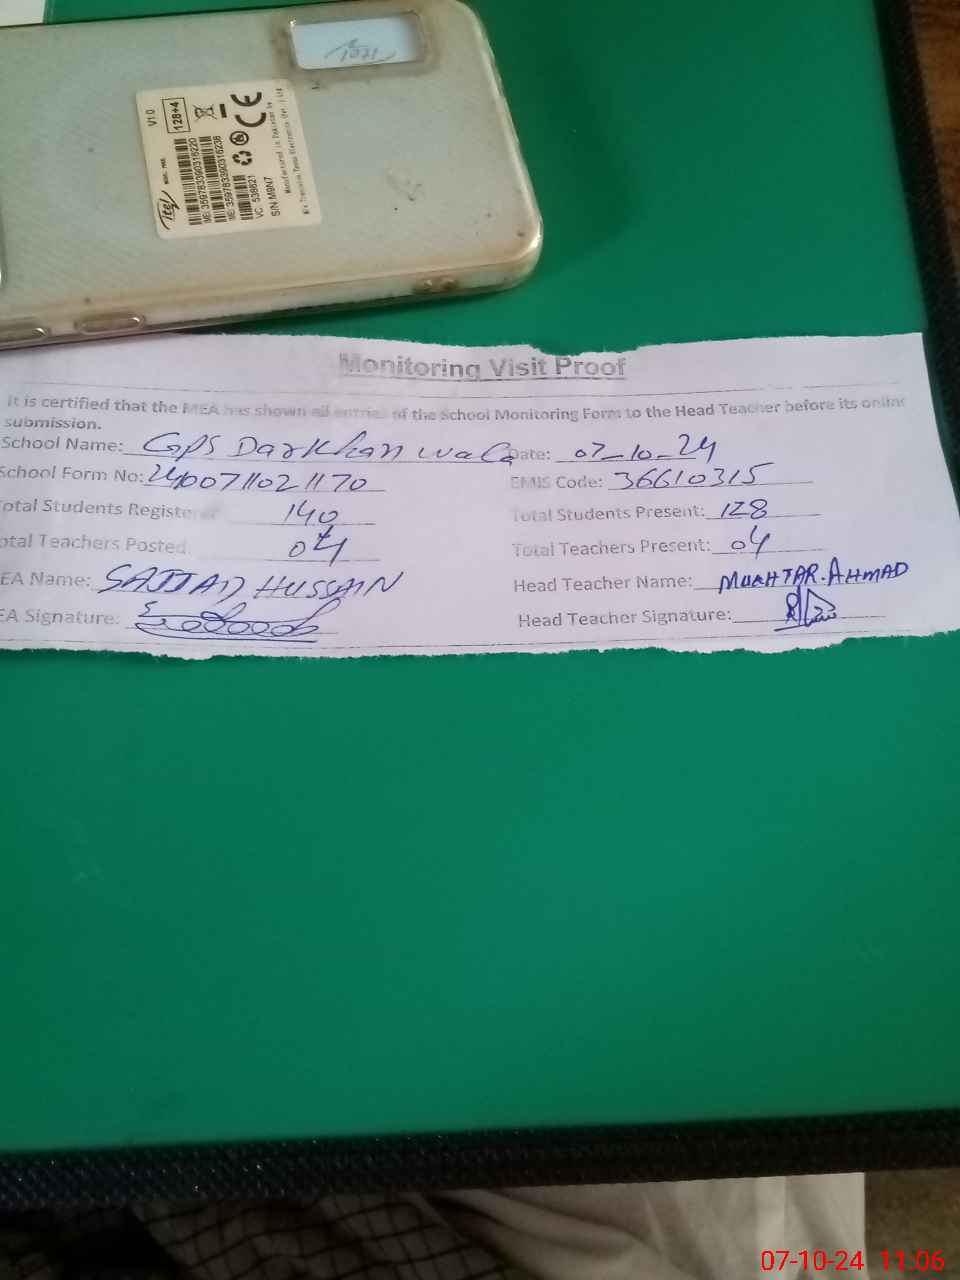 itel
V1.0
128+4
IMEI 359783390316220
IMEI 359783390316238
VC 538621
S/N M9N7
CE
Manufactured in Pakistan by
Monitoring Visit Proof
It is certified that the MEA has shown all entries of the School Monitoring Form to the Head Teacher before its online
submission.
School Name: GPS Darkhan wala Date: 07-10-24
School Form No: EMIS Code: 36610315
otal Students Registered 140 Total Students Present: 128
otal Teachers Posted 04 Total Teachers Present: 04
EA Name: SAJJAD HUSSAIN Head Teacher Name: MUKHTAR.AHMAD
EA Signature: Head Teacher Signature:
07-10-24 11:06